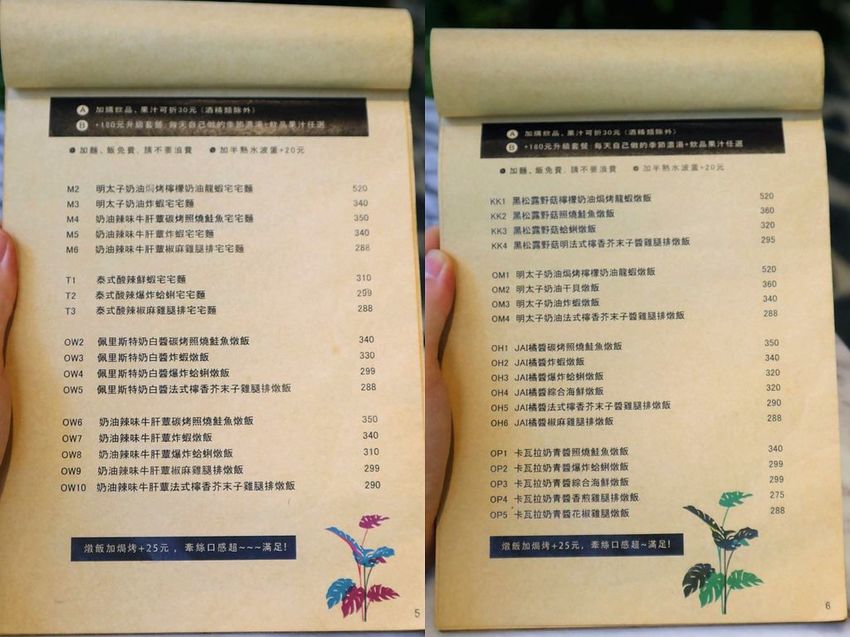 A 加購飲品、果汁可折30元（酒精類除外）
B +180元升級套餐：每天自己做的季節濃湯+飲品果汁任選
● 加麵、飯免費，請不要浪費 ● 加半熟水波蛋+20元
M2 明太子奶油焗烤檸檬奶油龍蝦宅宅麵 520
M3 明太子奶油炸蝦宅宅麵 340
M4 奶油辣味牛肝蕈碳烤照燒鮭魚宅宅麵 350
M5 奶油辣味牛肝蕈炸蝦宅宅麵 340
M6 奶油辣味牛肝蕈椒麻雞腿排宅宅麵 288
T1 泰式酸辣鮮蝦宅宅麵 310
T2 泰式酸辣爆炸蛤蜊宅宅麵 299
T3 泰式酸辣椒麻雞腿排宅宅麵 288
OW2 佩里斯特奶白醬碳烤照燒鮭魚燉飯 340
OW3 佩里斯特奶白醬炸蝦燉飯 330
OW4 佩里斯特奶白醬爆炸蛤蜊燉飯 299
OW5 佩里斯特奶白醬法式檸香芥末子雞腿排燉飯 288
OW6 奶油辣味牛肝蕈碳烤照燒鮭魚燉飯 350
OW7 奶油辣味牛肝蕈炸蝦燉飯 340
OW8 奶油辣味牛肝蕈爆炸蛤蜊燉飯 310
OW9 奶油辣味牛肝蕈椒麻雞腿排燉飯 299
OW10 奶油辣味牛肝蕈法式檸香芥末子雞腿排燉飯 290
燉飯加焗烤+25元，牽絲口感超~~~滿足!
5
A 加購飲品、果汁可折30元（酒精類除外）
B +180元升級套餐：每天自己做的季節濃湯+飲品果汁任選
● 加麵、飯免費，請不要浪費 ● 加半熟水波蛋+20元
KK1 黑松露野菇檸檬奶油焗烤龍蝦燉飯 520
KK2 黑松露野菇照燒鮭魚燉飯 360
KK3 黑松露野菇蛤蜊燉飯 320
KK4 黑松露野菇明法式檸香芥末子醬雞腿排燉飯 295
OM1 明太子奶油焗烤檸檬奶油龍蝦燉飯 520
OM2 明太子奶油干貝燉飯 360
OM3 明太子奶油炸蝦燉飯 340
OM4 明太子奶油法式檸香芥末子醬雞腿排燉飯 288
OH1 JAI橘醬碳烤照燒鮭魚燉飯 350
OH2 JAI橘醬炸蝦燉飯 340
OH3 JAI橘醬爆炸蛤蜊燉飯 320
OH4 JAI橘醬綜合海鮮燉飯 320
OH5 JAI橘醬法式檸香芥末子醬雞腿排燉飯 290
OH6 JAI橘醬椒麻雞腿燉飯 288
OP1 卡瓦拉奶青醬照燒鮭魚燉飯 340
OP2 卡瓦拉奶青醬爆炸蛤蜊燉飯 299
OP3 卡瓦拉奶青醬綜合海鮮燉飯 299
OP4 卡瓦拉奶青醬香煎雞腿排燉飯 275
OP5 卡瓦拉奶青醬花椒雞腿燉飯 288
燉飯加焗烤+25元，牽絲口感超~滿足!
6